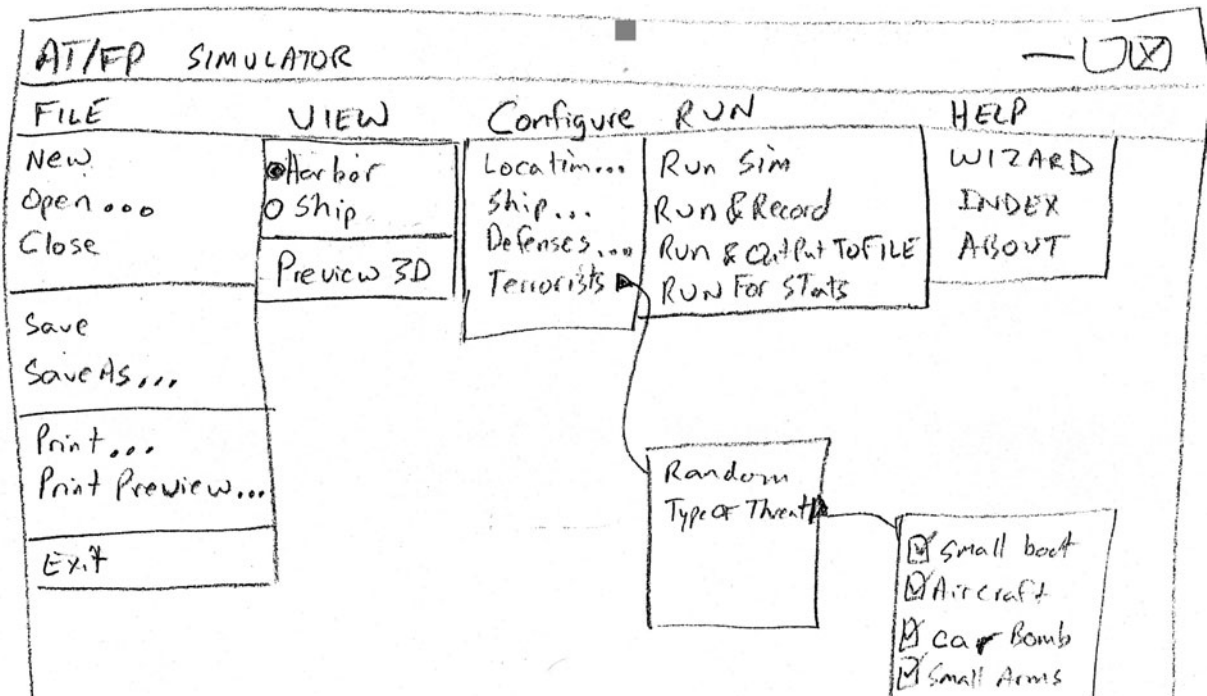 AT/FP SIMULATOR
FILE VIEW Configure RUN HELP
New
Open...
Close
Save
Save As...
Print...
Print Preview...
Exit
Harbor
Ship
Preview 3D
Location...
Ship...
Defenses...
Terrorists
Run Sim
Run & Record
Run & OutPut TO FILE
RUN For STats
WIZARD
INDEX
ABOUT
Random
Type OF Threat
Small boat
Aircraft
Car Bomb
Small Arms